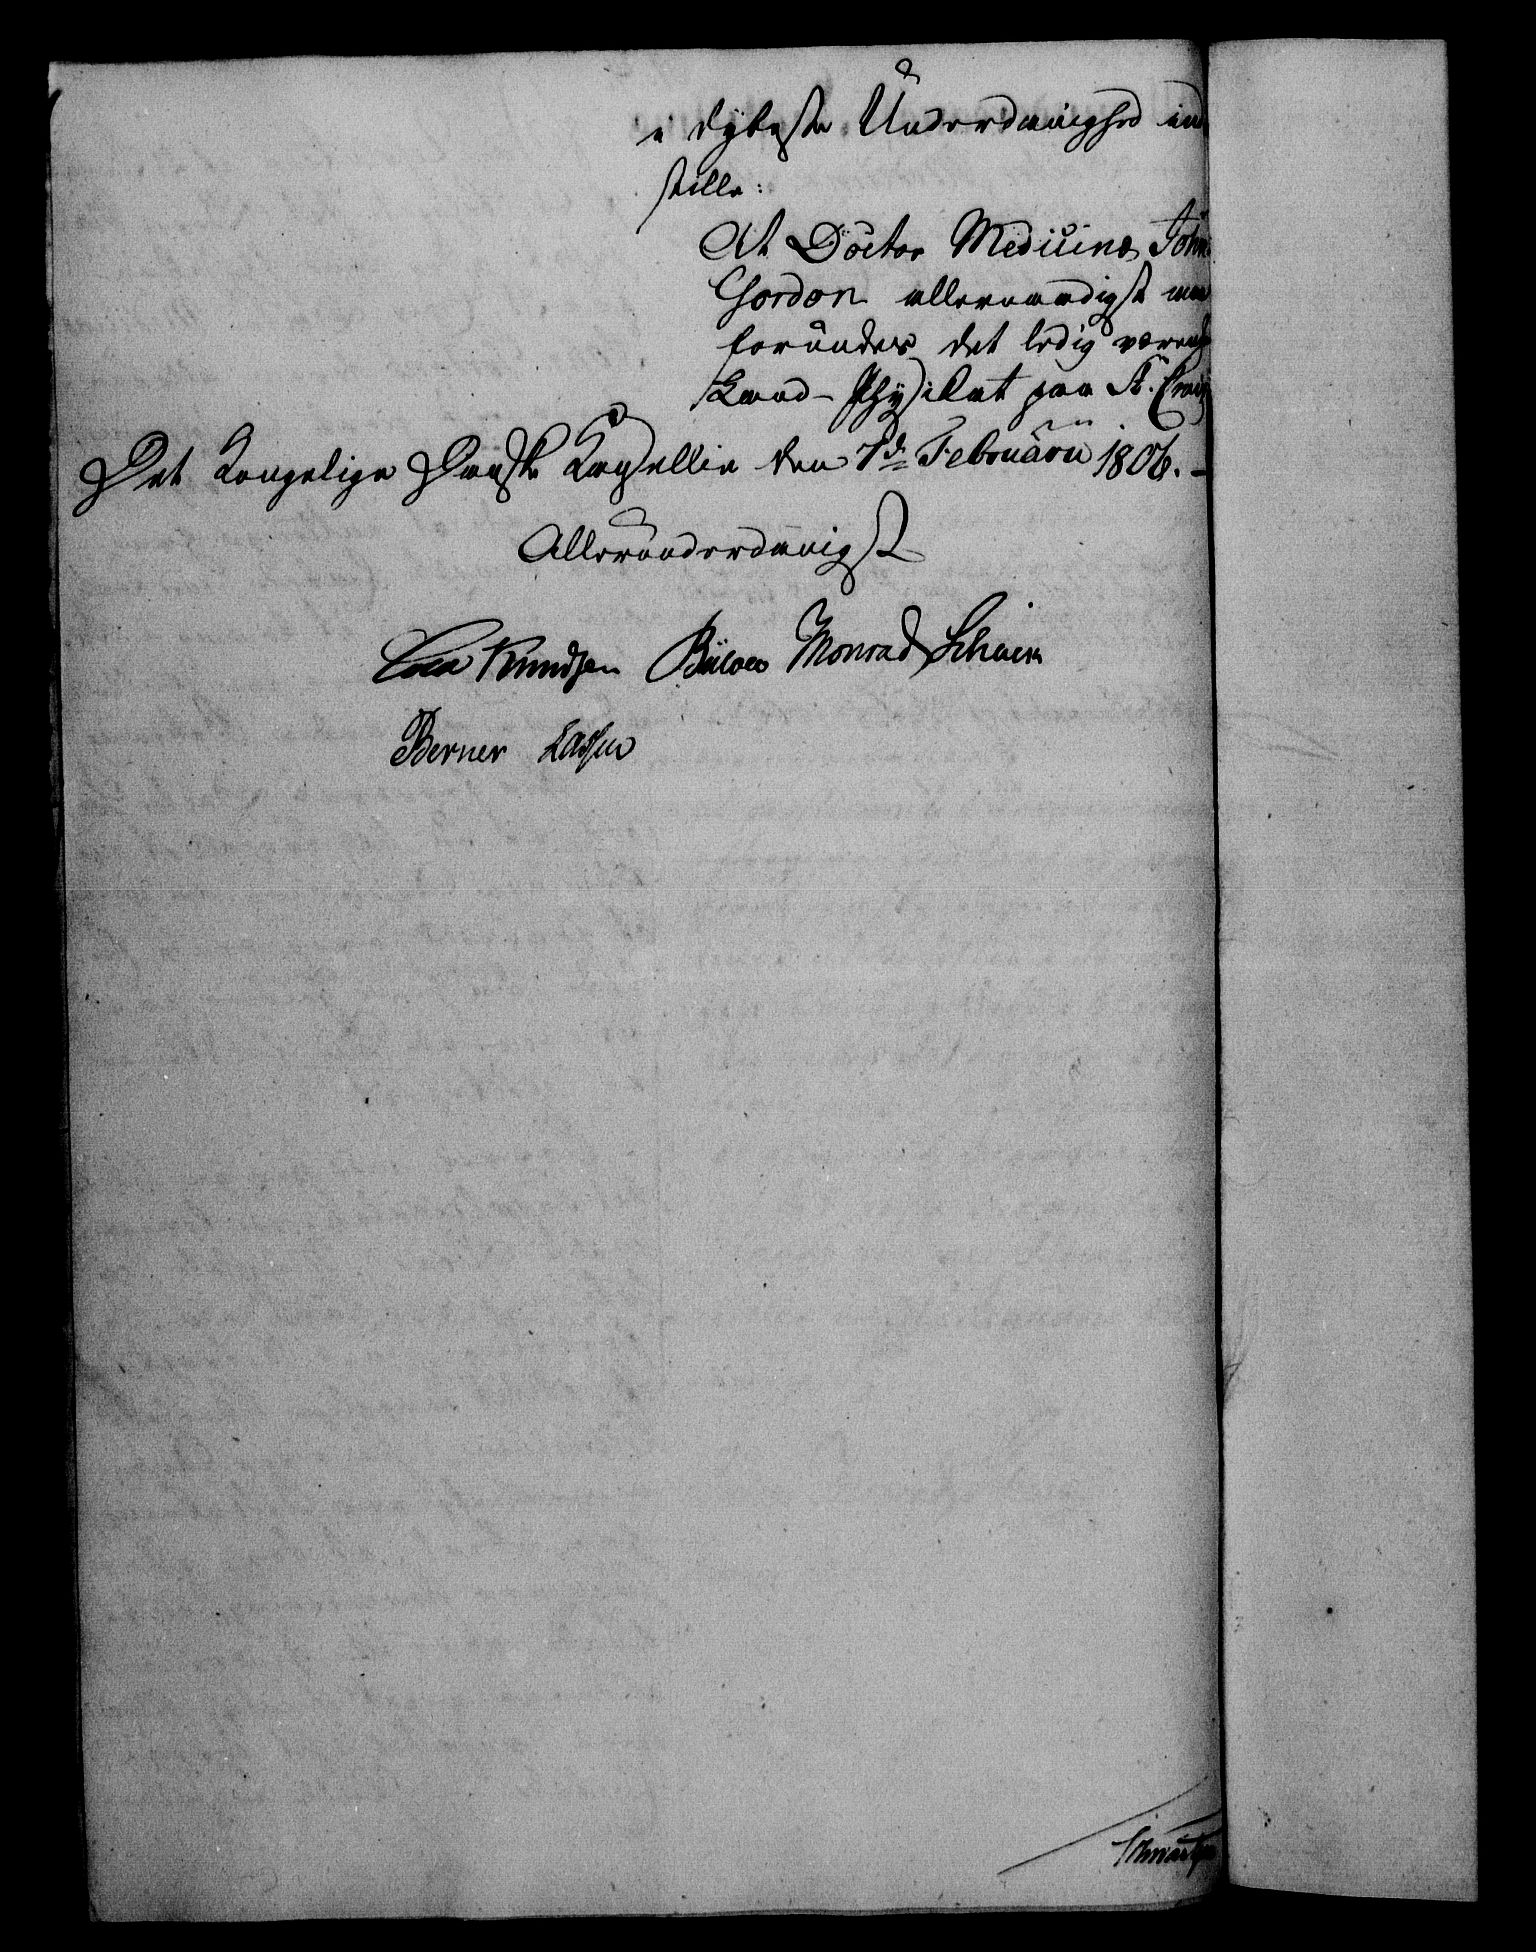 i dybeste Underdanighed ind
stille:
At Doctor Medicinæ John
Gordon allernaadigst maa
forundes det ledig værende
Land-Physicat paa St. Croix
Det Kongelige Danske Kancellie den 7de Februarii 1806.
Allerunderdanigst
Knudsen Bülow Monrad Schack
Berner Lassen